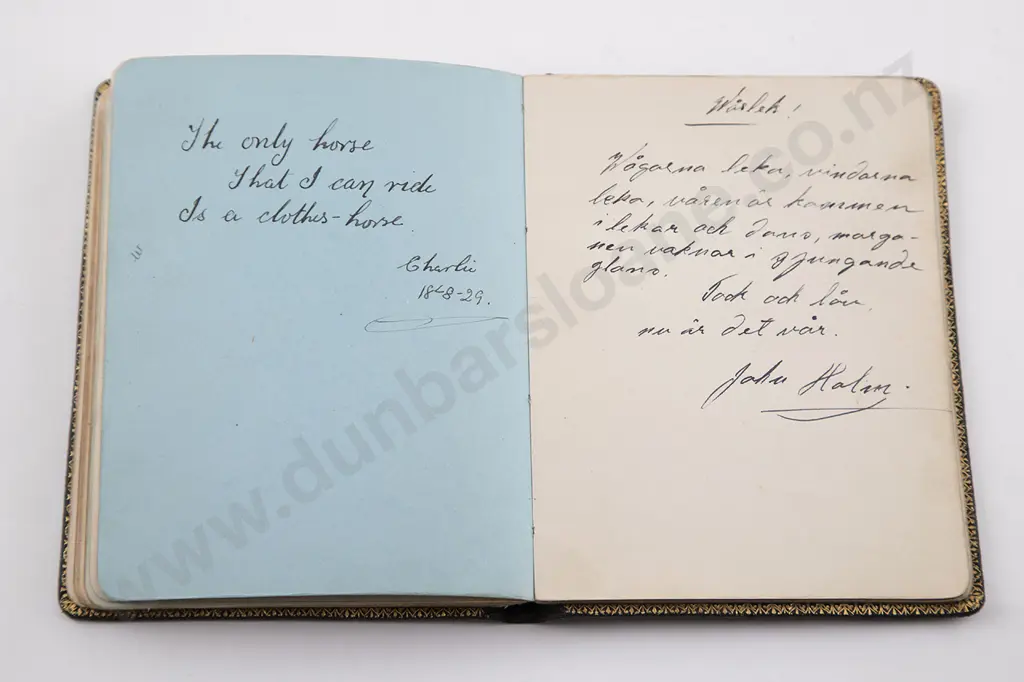 The only horse
That I can ride
Is a clothes-horse.
Charlie
18-8-29.
Wårlek!
Wågorna leka, vindarna
leka, våren är kommen
i lekar och dans, morgo-
nen vaknar i gjungande
glans.
Tack och lov
nu är det vår.
John Holm.
www.dunbarsloane.co.nz